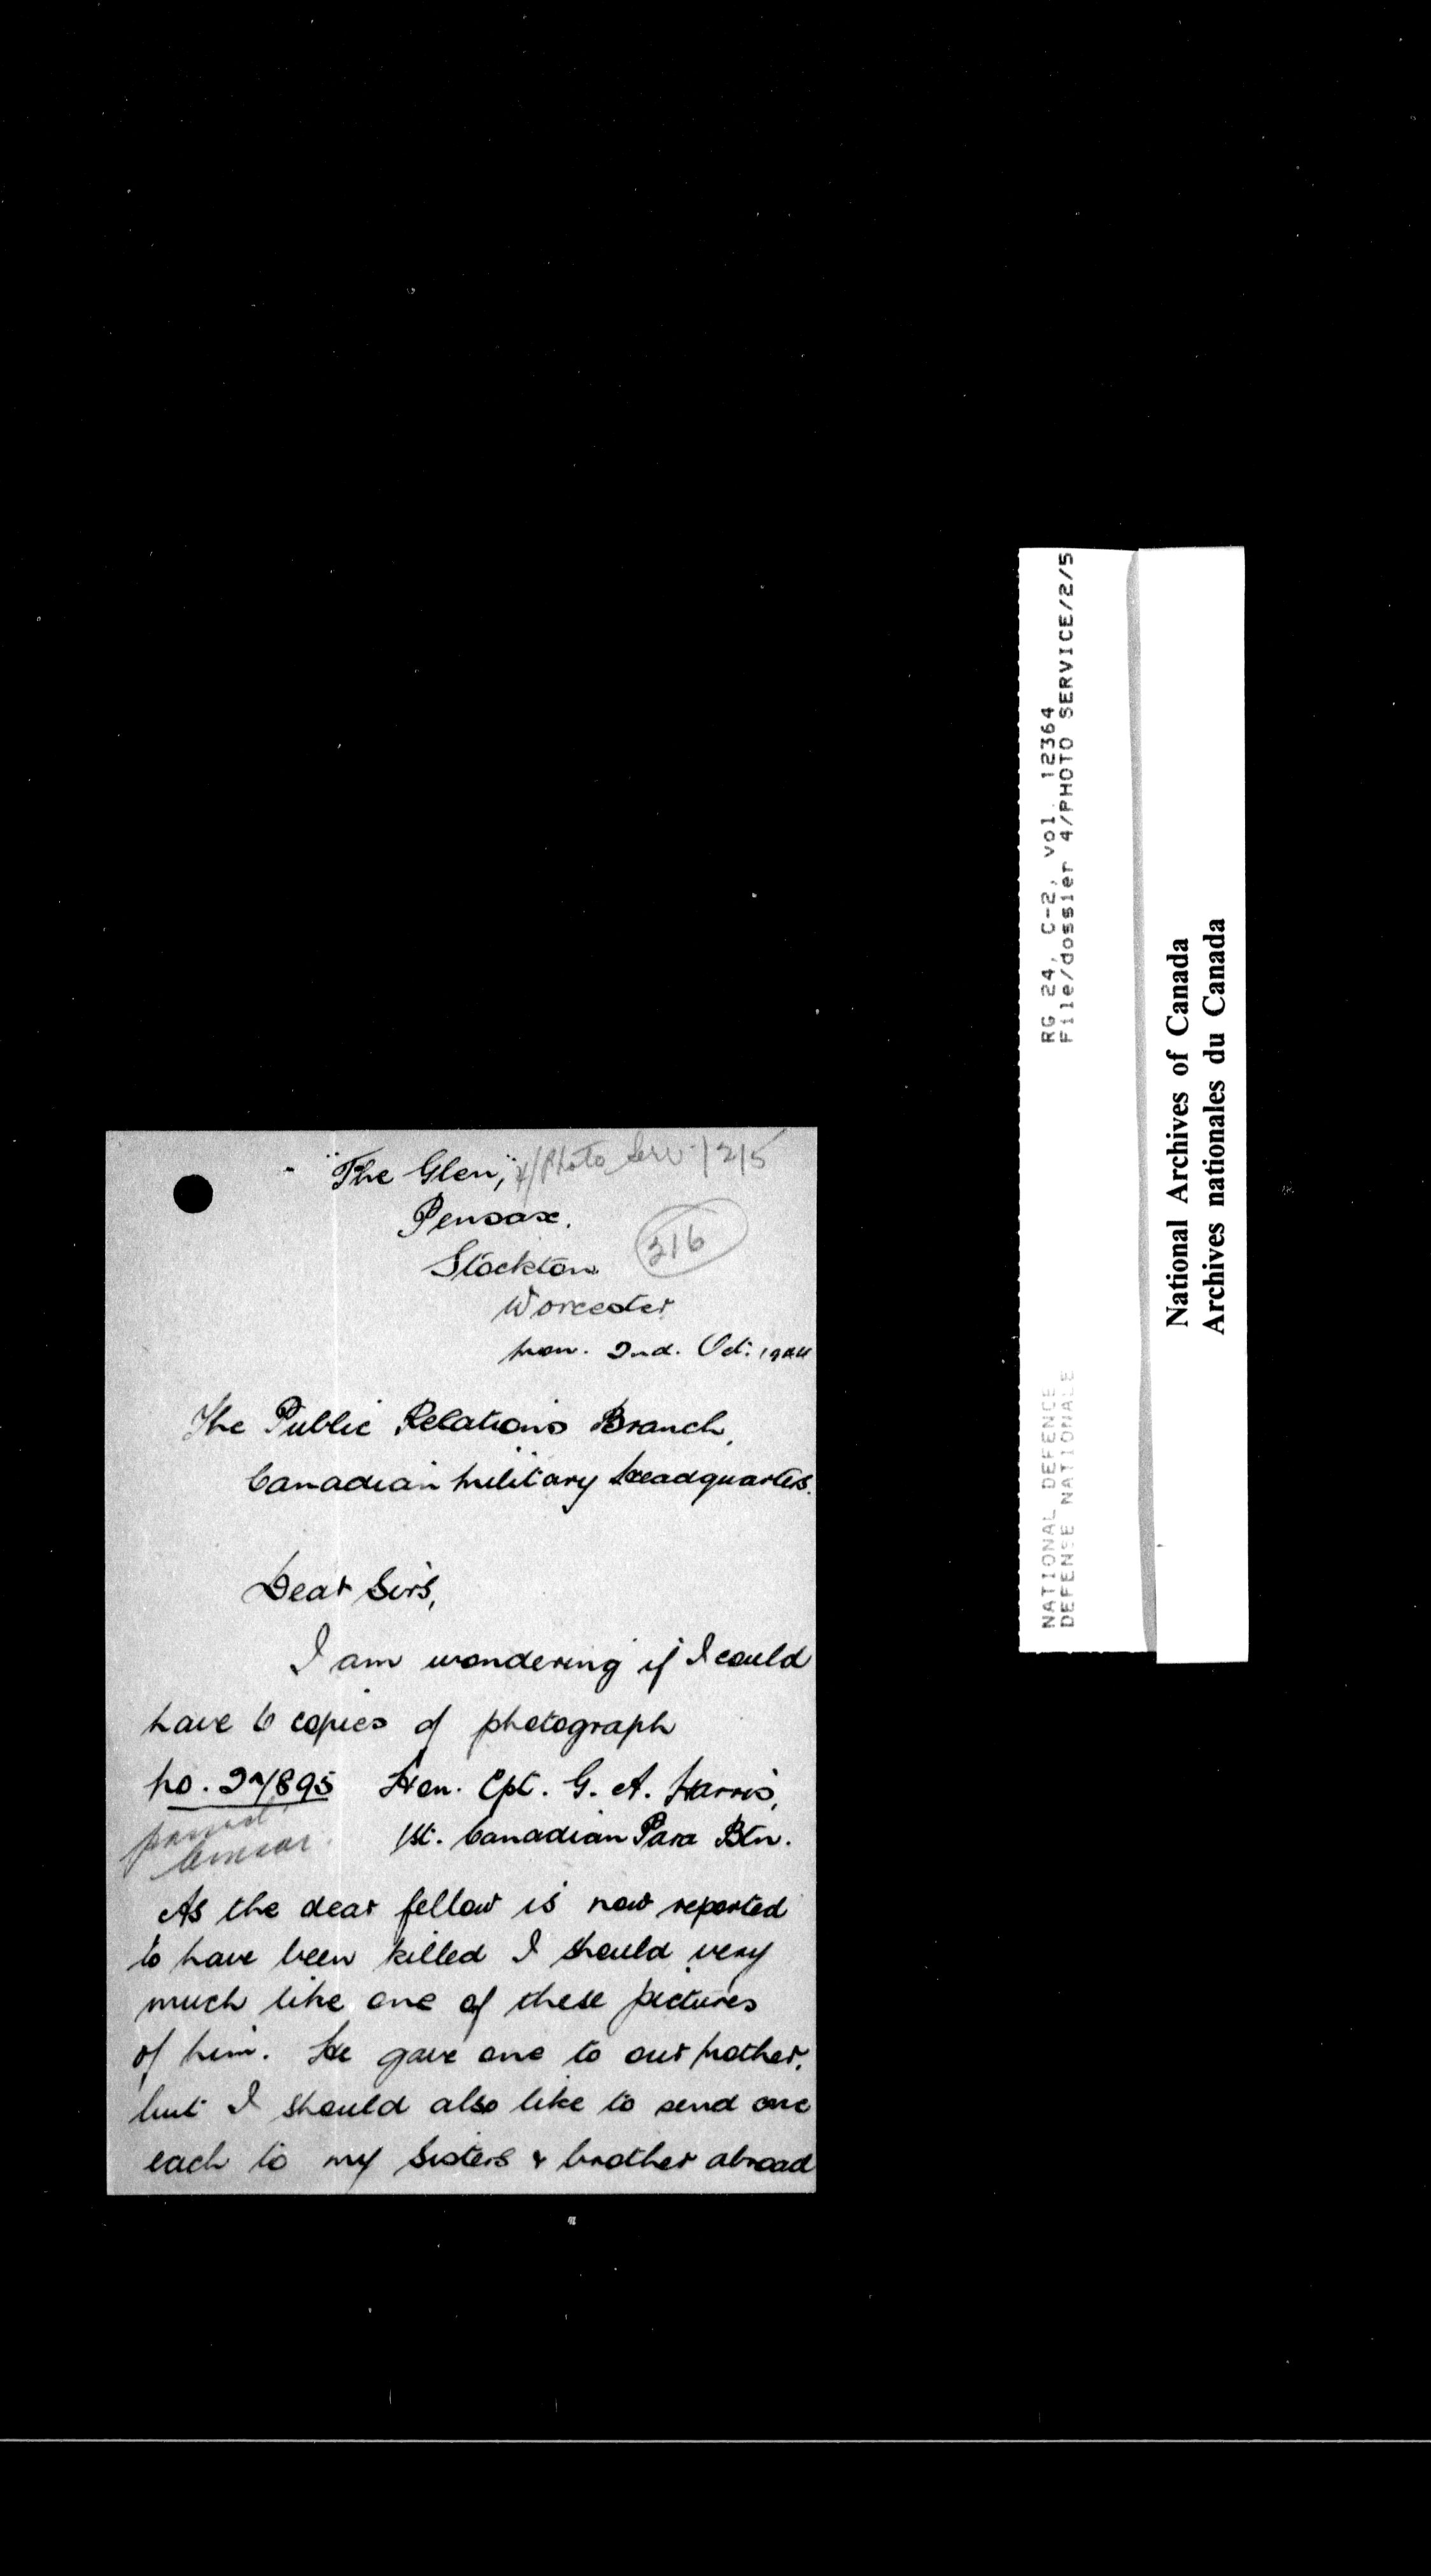 "The Glen", 4/Photo Serv./2/5
Pensax.
316
Stockton
Worcester
Mon. 2nd. Oct: 1944
The Public Relations Branch,
Canadian Military Headquarters.
Dear Sirs,
I am wondering if I could
have 6 copies of photograph
No. 27895 Hon. Cpt. G. A. Harris,
1st. Canadian Para Btn.
As the dear fellow is now reported
to have been killed I should very
much like one of these pictures
of him. He gave one to our Mother,
but I should also like to send one
each to my Sisters & brother abroad
RG 24, C-2, vol. 12364
File/dossier 4/PHOTO SERVICE/2/5
NATIONAL DEFENCE
DEFENSE NATIONALE
National Archives of Canada
Archives nationales du Canada